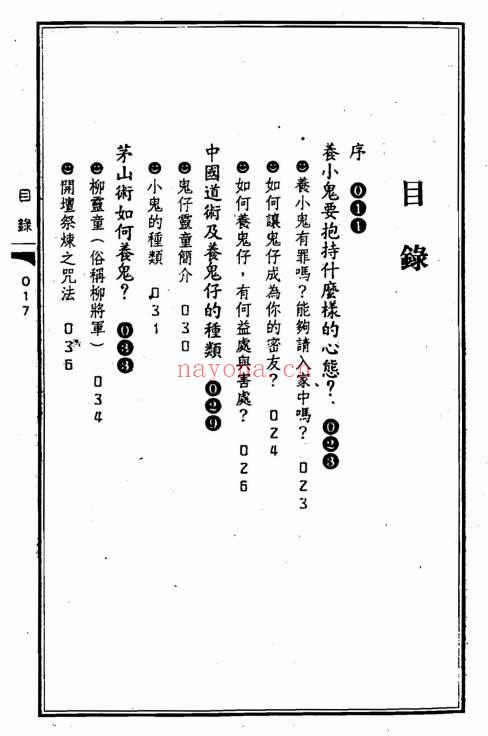 目錄
序 011
養小鬼要抱持什麼樣的心態？ 023
養小鬼有罪嗎？能夠請入家中嗎？ 023
如何讓鬼仔成為你的密友？ 024
如何養鬼仔，有何益處與害處？ 026
中國道術及養鬼仔的種類 029
鬼仔靈童簡介 030
小鬼的種類 031
茅山術如何養鬼？ 033
柳靈童（俗稱柳將軍） 034
開壇祭煉之咒法 036
目錄
017
nayona.cn